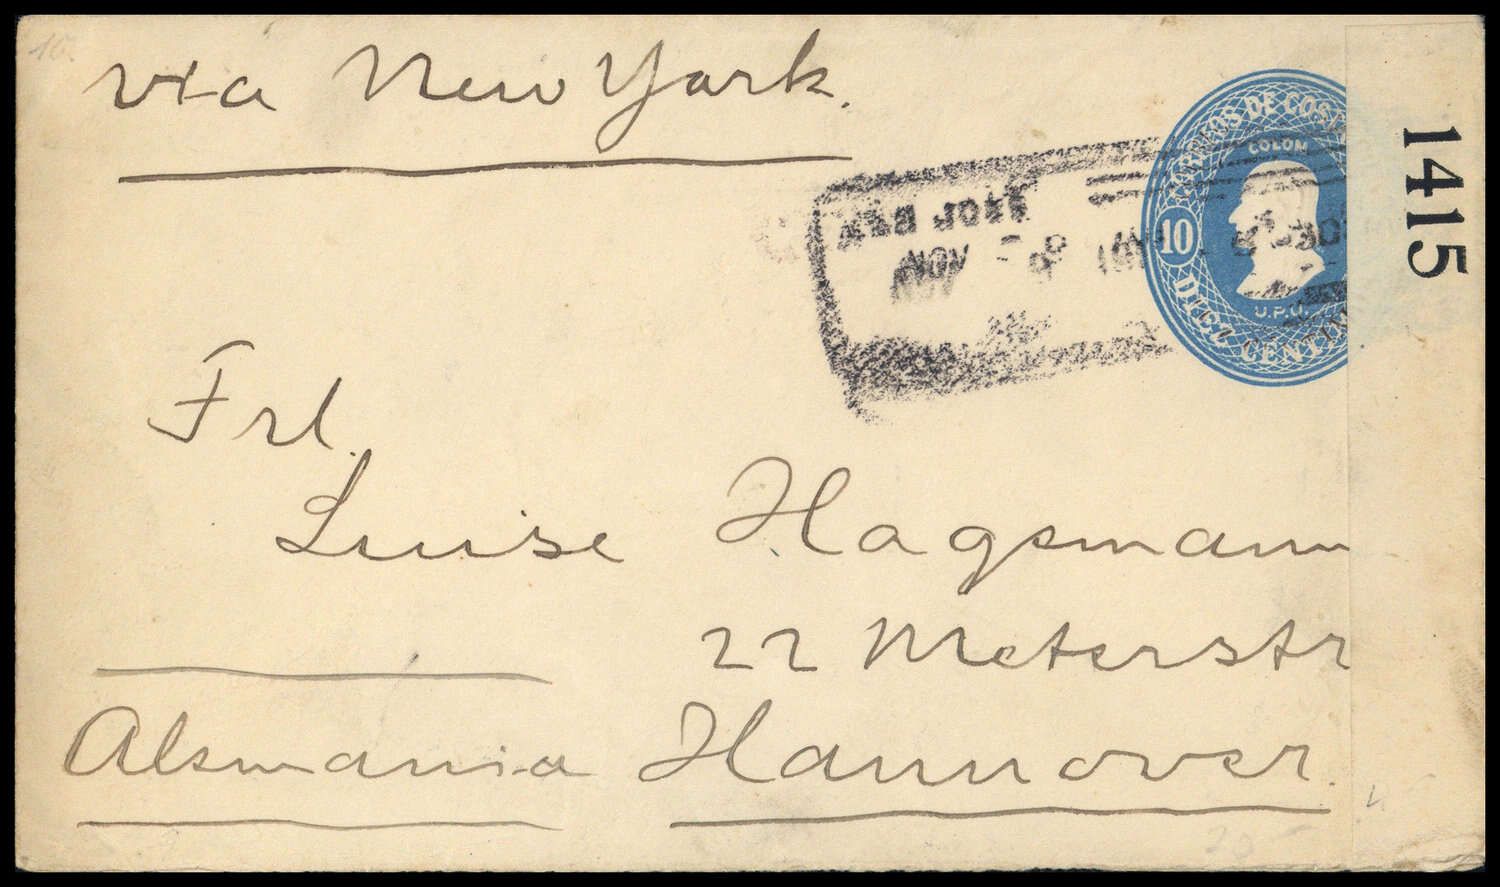 via New York.
CORREOS DE COS
COLON
10
U.P.U.
DIEZ CENTIM
1415
NOV
Frl.
Luise Hagemann
22 Meterstr
Alemania Hannover.